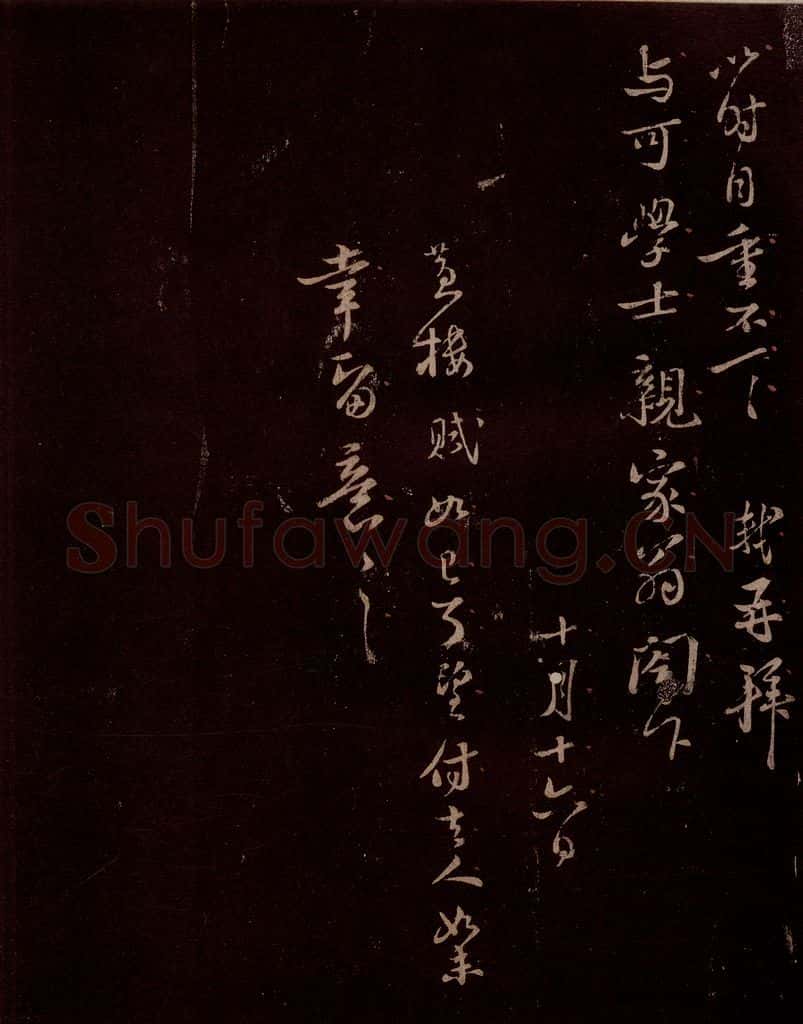 以時自重不一一 軾再拜
与可學士親家翁閣下
十月十六日
黃樓賦如已了望付去人如未
幸留意〻〻
Shufawang.CN